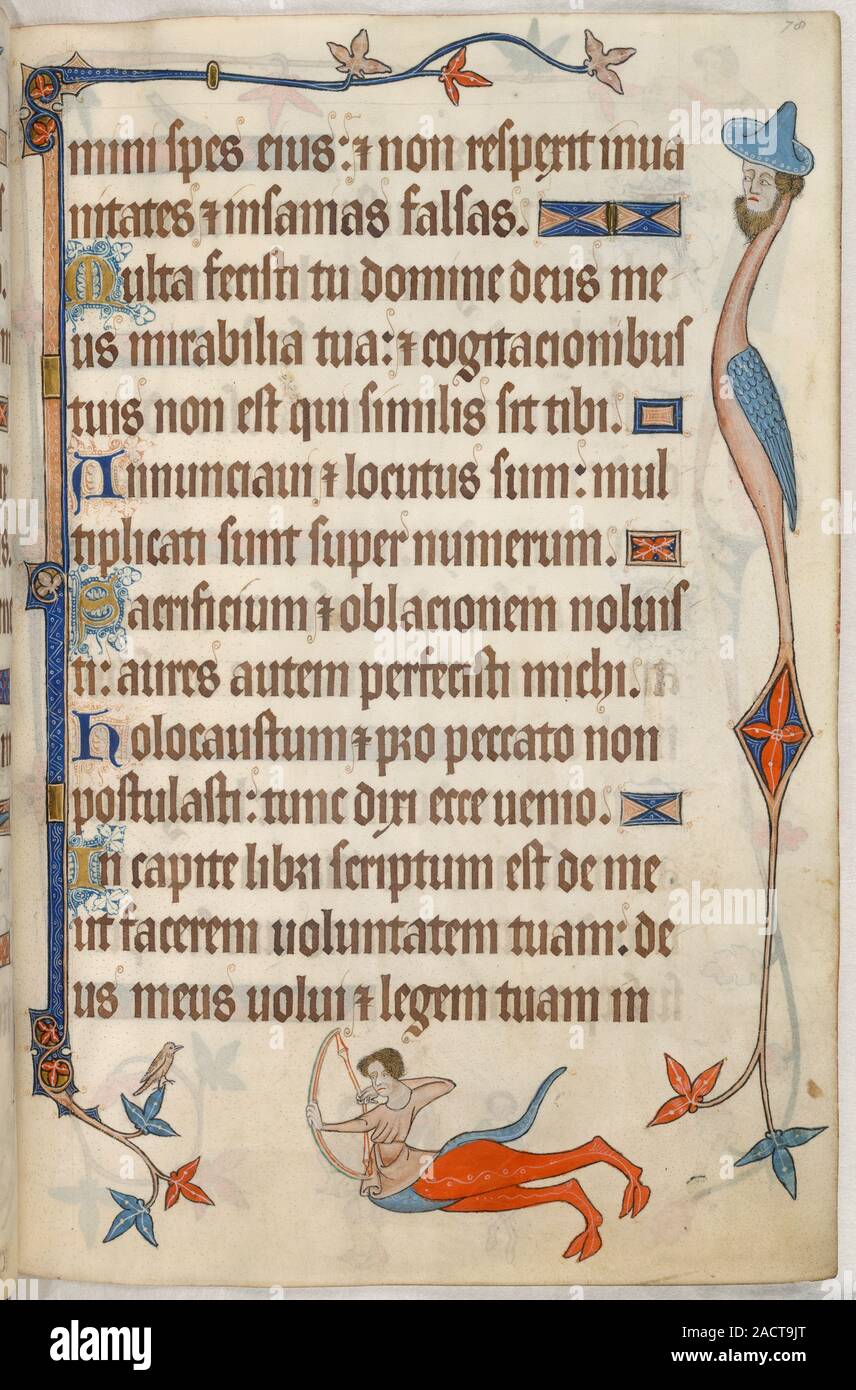 78
mini spes eius: ⁊ non respexit in ua
nitates ⁊ insanias falsas.
Multa fecisti tu domine deus me
us mirabilia tua: ⁊ cogitacionibus
tuis non est qui similis sit tibi.
Annunciaui ⁊ locutus sum: mul
tiplicati sunt super numerum.
Sacrificium ⁊ oblacionem noluis
ti: aures autem perfecisti michi.
holocaustum ⁊ pro peccato non
postulasti: tunc dixi ecce uenio.
In capite libri scriptum est de me
ut facerem uoluntatem tuam: de
us meus uolui ⁊ legem tuam in
alamy
Image ID: 2ACT9JT
www.alamy.com